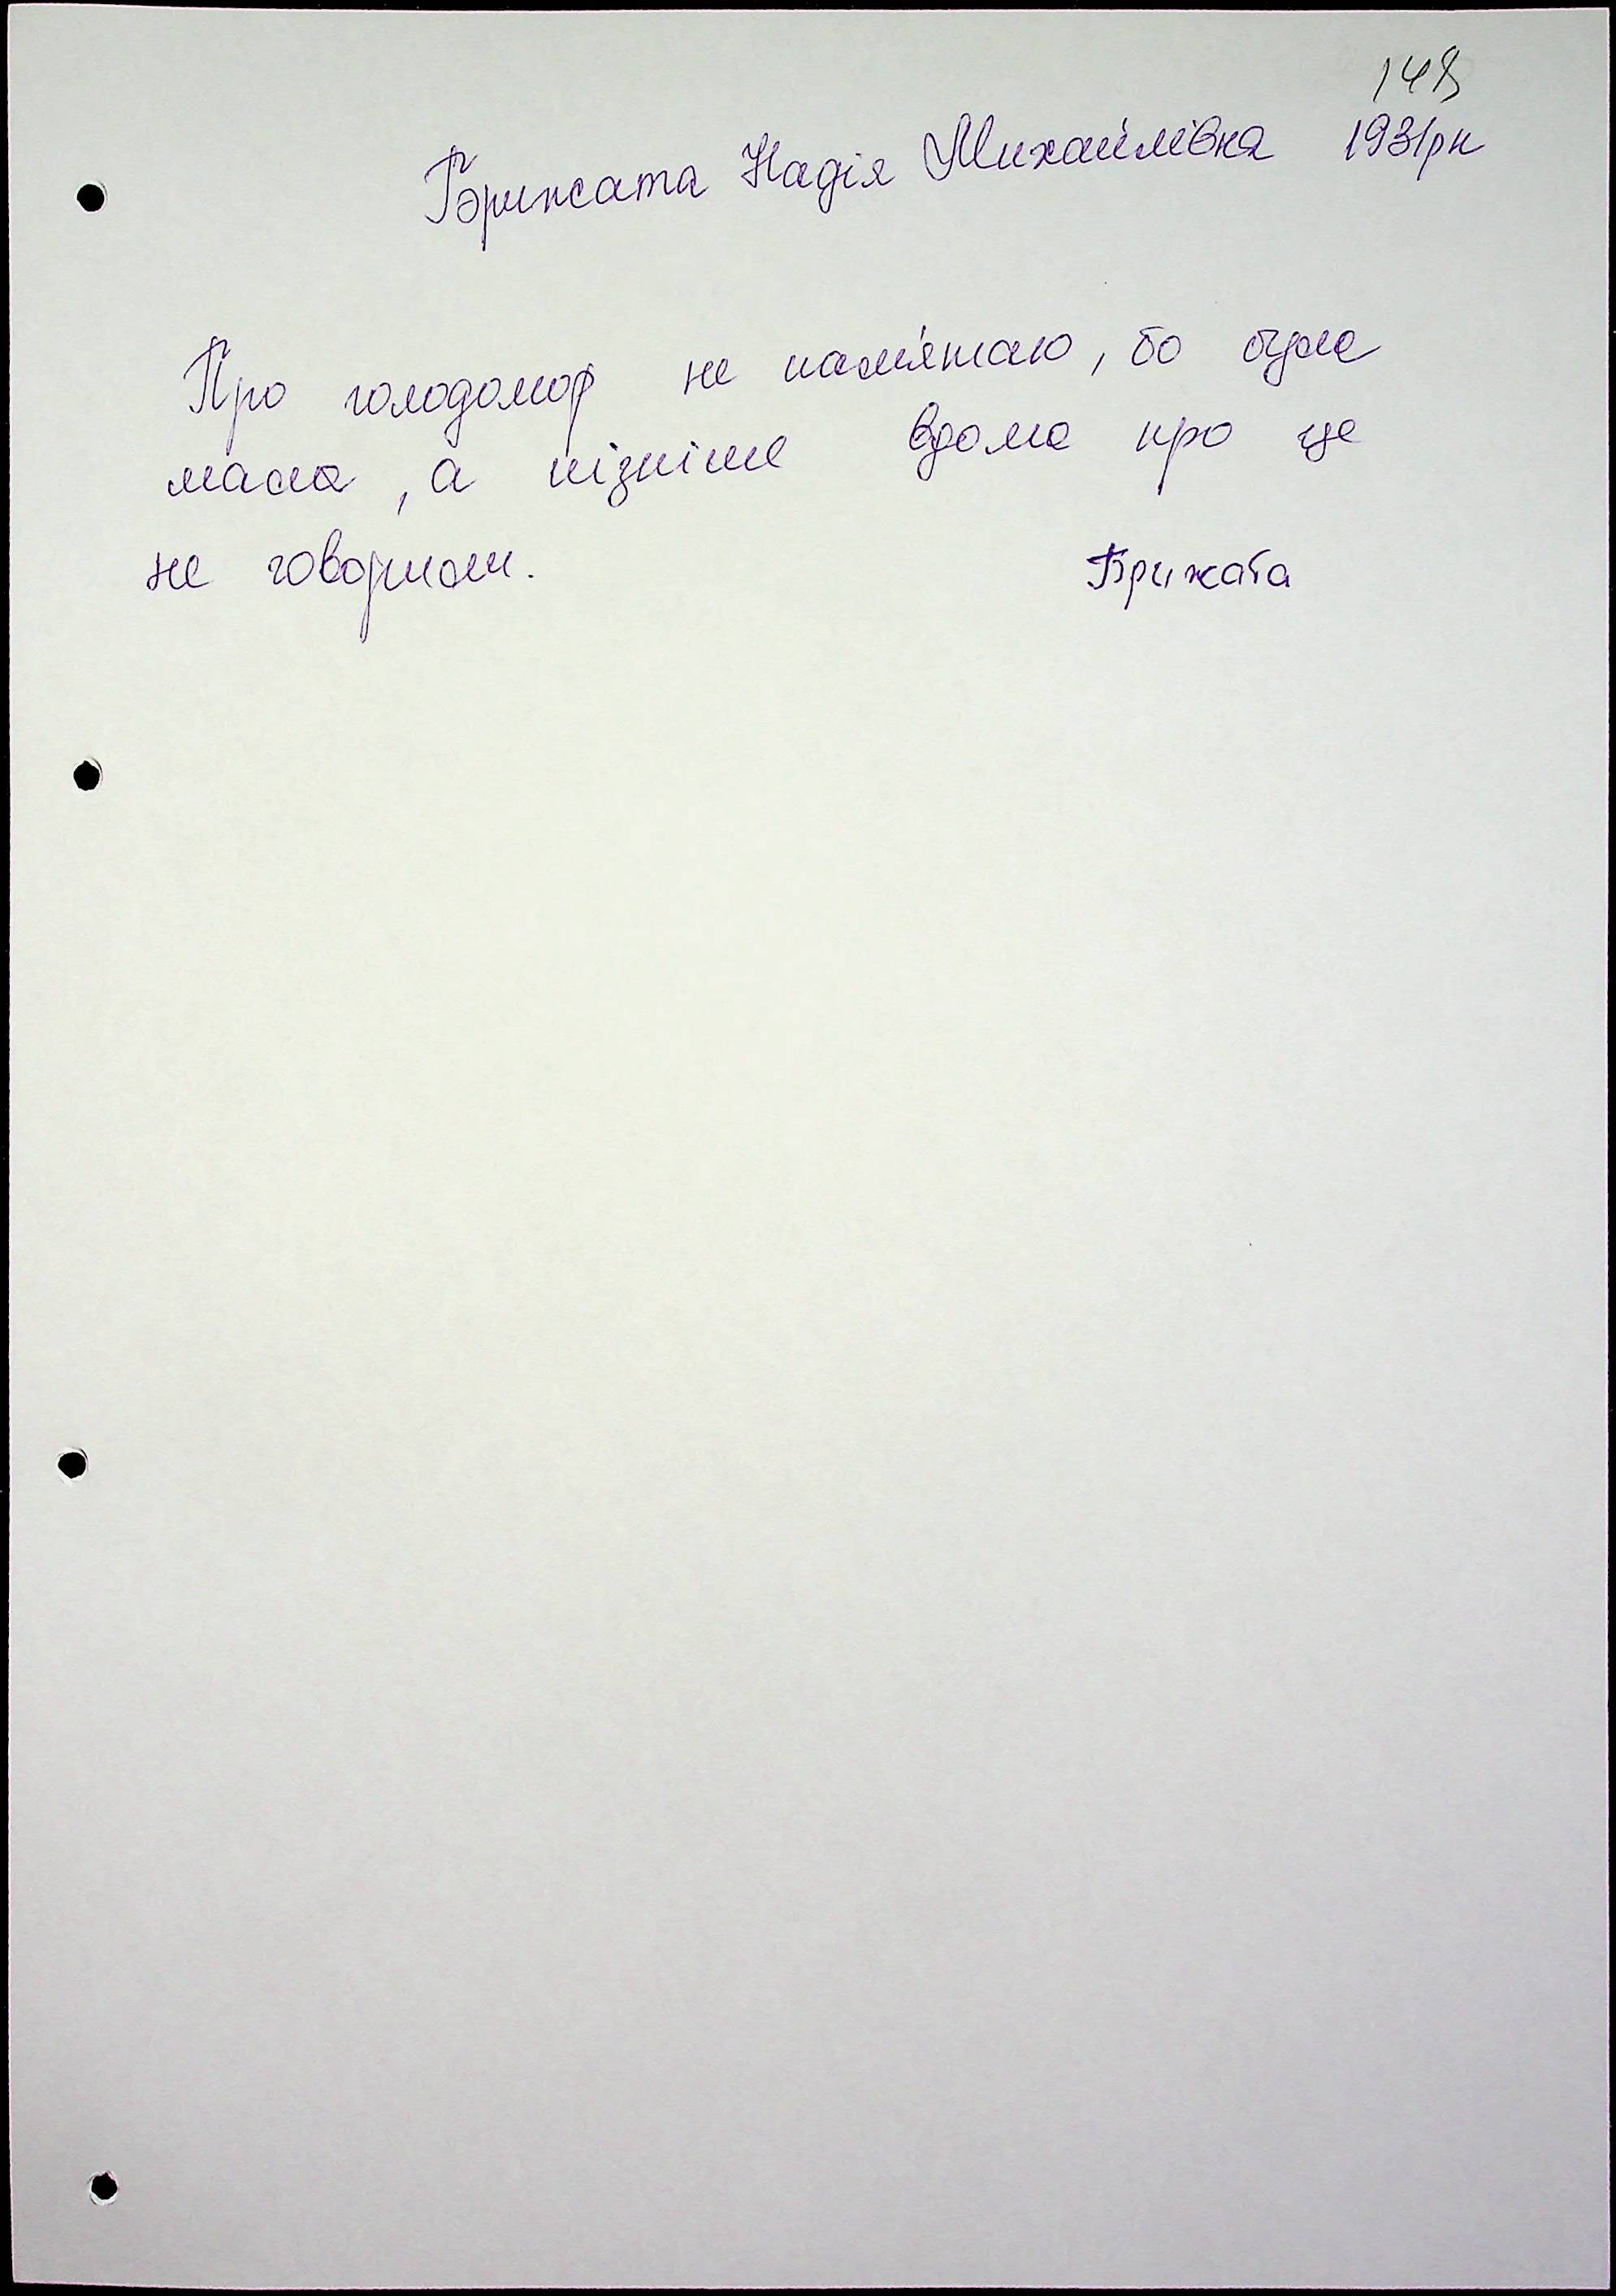 148
Брижата Надія Михайлівна 1931рн
Про голодомор не пам'ятаю, бо була
мала, а пізніше вдома про це
не говорили.
Брижата